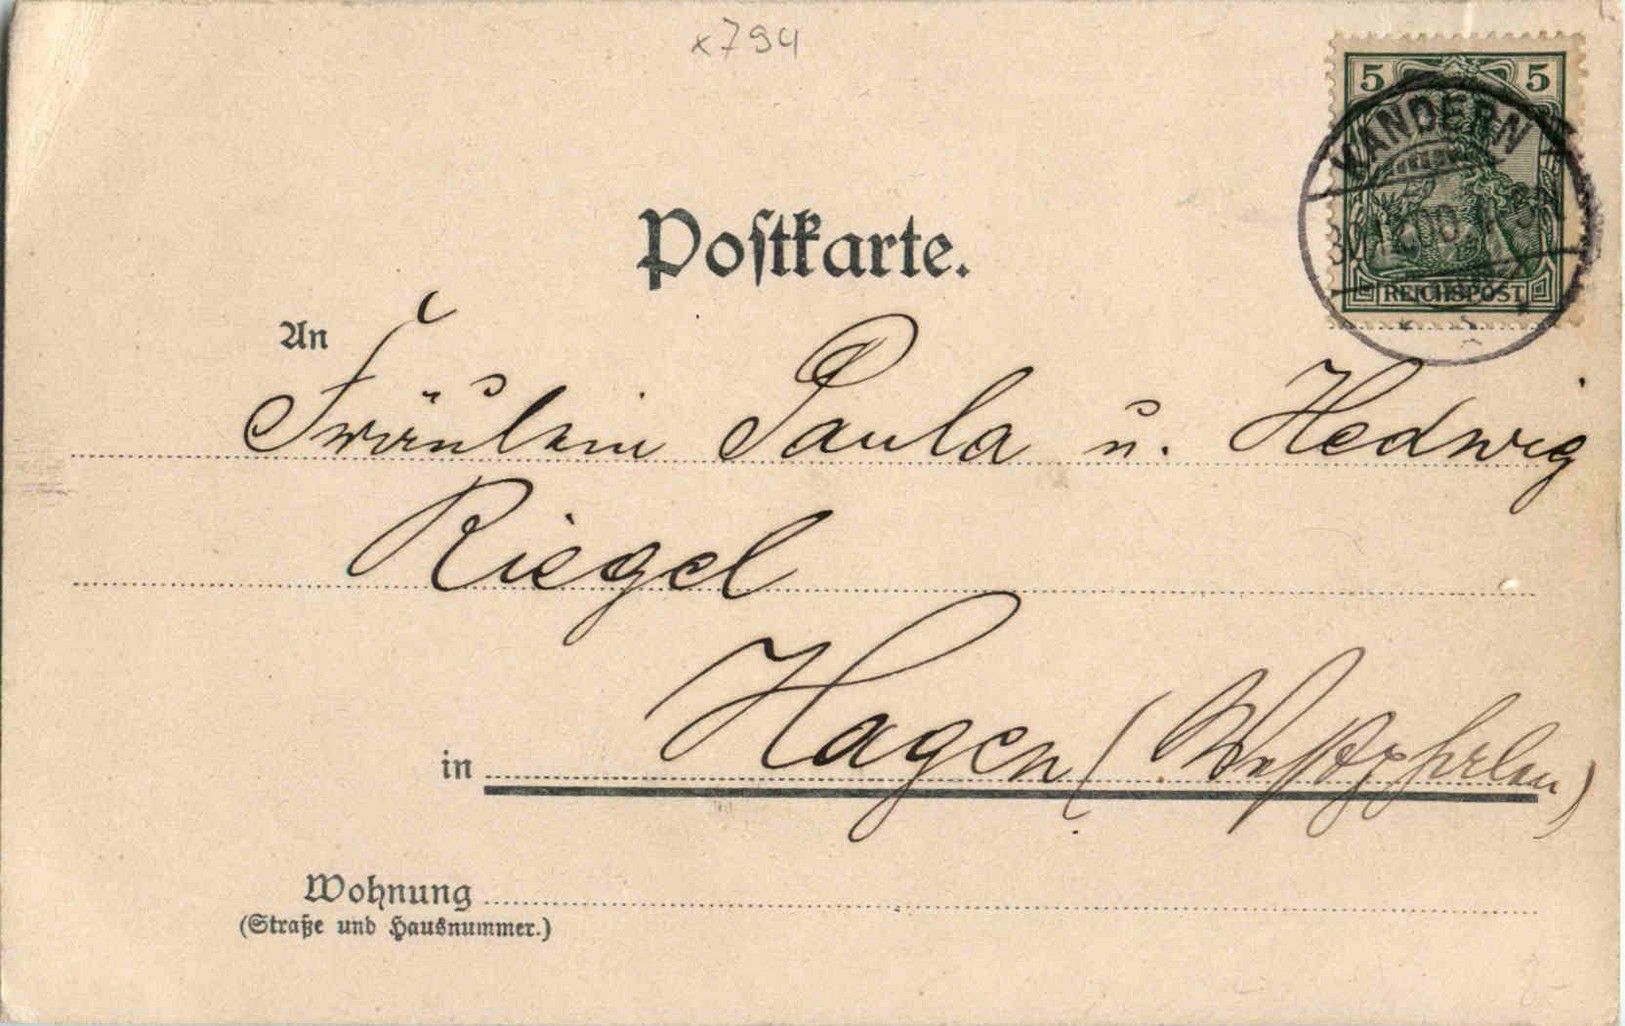 x794
5 5
KANDERN
REICHSPOST
Postkarte.
An
Fräulein Paula u. Hedwig
Riegel
in Hagen (Westfahlen)
Wohnung
(Straße und Hausnummer.)